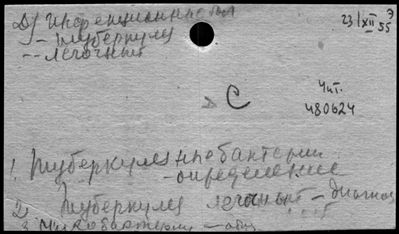 Д) Инфекционные
23/XII 55
- туберкулез
-- легочный
С
Чит.
480624
1. Туберкулез микобактерии
- определение
2) Туберкулез легочный - диагноз
3 Микобактерии -